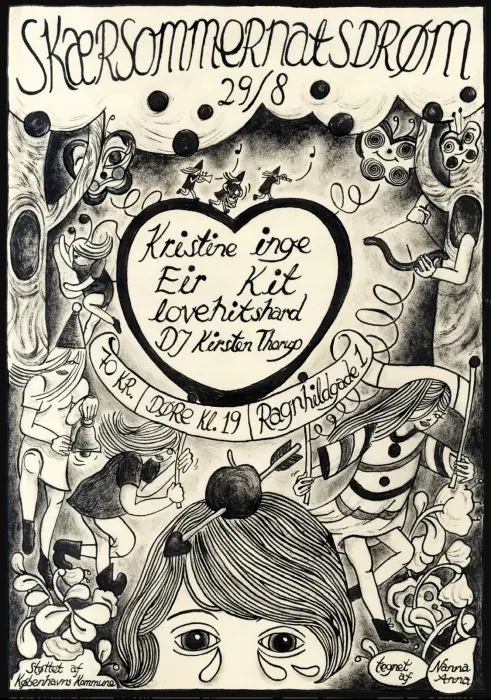 SKÆRSOMMERNATSDRØM
29/8
Kristine inge
Eir Kit
lovehitshard
DJ Kirsten Thorup
70 KR. DØRE KL. 19 Ragnhildgade 1
Støttet af
Københavns Kommune
tegnet
af
Nanna
Anna